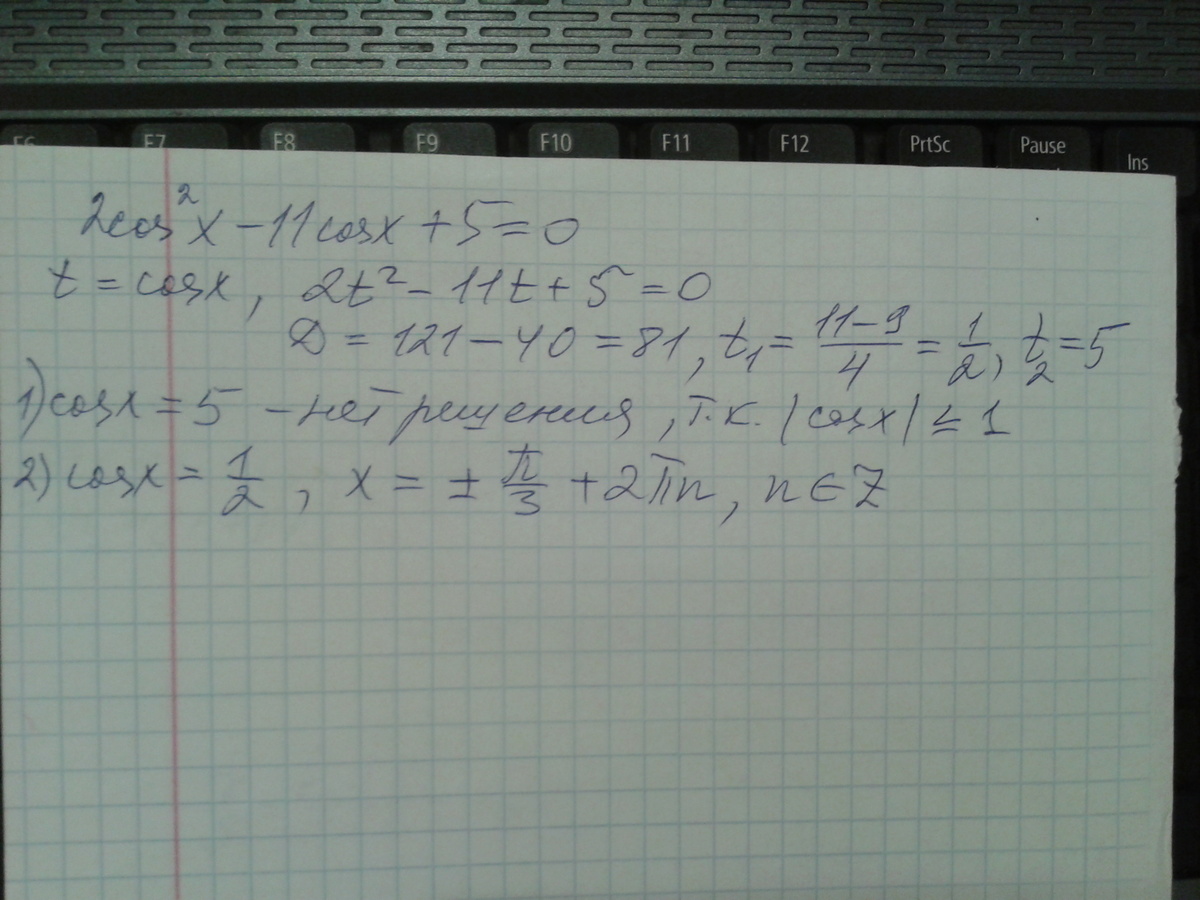 F6 F7 F8 F9 F10 F11 F12 PrtSc Pause Ins
2cos²x − 11cosx + 5 = 0
t = cosx, 2t² − 11t + 5 = 0
D = 121 − 40 = 81, t₁ = (11−9)/4 = 1/2, t₂ = 5
1) cosx = 5 − нет решения, т.к. |cosx| ≤ 1
2) cosx = 1/2, x = ± π/3 + 2πn, n ∈ Z